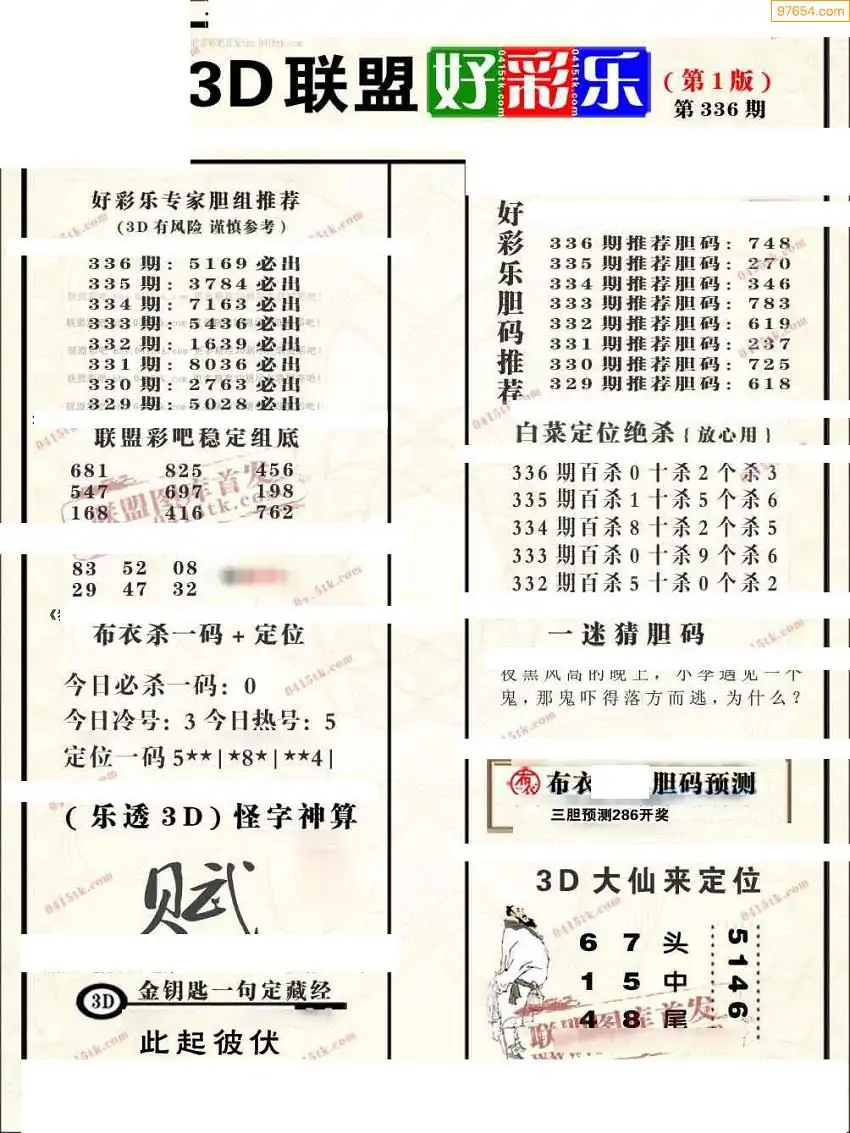 97654.com
3D联盟好彩乐
(第1版)
第336期
好彩乐专家胆组推荐
(3D有风险 谨慎参考)
336期:5169必出
335期:3784必出
334期:7163必出
333期:5436必出
332期:1639必出
331期:8036必出
330期:2763必出
329期:5028必出
联盟彩吧稳定组底
681 825 456
547 697 198
168 416 762
83 52 08
29 47 32
布衣杀一码+定位
今日必杀一码:0
今日冷号:3 今日热号:5
定位一码5**|*8*|**4|
(乐透3D)怪字神算
赋
3D
金钥匙一句定藏经
此起彼伏
好彩乐胆码推荐
336期推荐胆码:748
335期推荐胆码:270
334期推荐胆码:346
333期推荐胆码:783
332期推荐胆码:619
331期推荐胆码:237
330期推荐胆码:725
329期推荐胆码:618
白菜定位绝杀{放心用}
336期百杀0十杀2个杀3
335期百杀1十杀5个杀6
334期百杀8十杀2个杀5
333期百杀0十杀9个杀6
332期百杀5十杀0个杀2
一迷猜胆码
夜黑风高的晚上,小李遇见一个
鬼,那鬼吓得落方而逃,为什么?
布衣 胆码预测
三胆预测286开奖
3D大仙来定位
6 7 头
1 5 中
4 8 尾
5146
联盟图库首发
0415tk.com